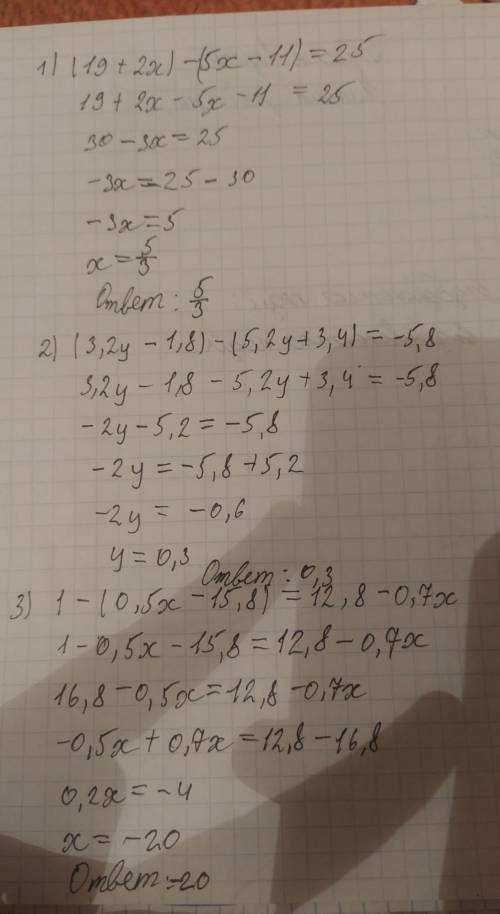 1) (19 + 2x) - (5x - 11) = 25
19 + 2x - 5x - 11 = 25
30 - 3x = 25
-3x = 25 - 30
-3x = 5
x = 5/3
Ответ: 5/3
2) (3,2y - 1,8) - (5,2y + 3,4) = -5,8
3,2y - 1,8 - 5,2y + 3,4 = -5,8
-2y - 5,2 = -5,8
-2y = -5,8 + 5,2
-2y = -0,6
y = 0,3
Ответ: 0,3
3) 1 - (0,5x - 15,8) = 12,8 - 0,7x
1 - 0,5x - 15,8 = 12,8 - 0,7x
16,8 - 0,5x = 12,8 - 0,7x
-0,5x + 0,7x = 12,8 - 16,8
0,2x = -4
x = -20
Ответ: -20